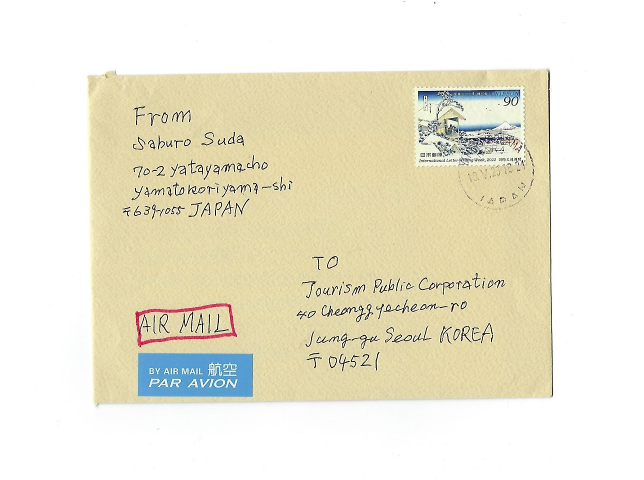 From
Saburo Suda
70-2 yatayamacho
yamatokoriyama-shi
〒639-1055 JAPAN
90
日本郵便
International Letter Writing Week, 2022
JAPAN
TO
Tourism Public Corporation
40 Cheonggyecheon-ro
Jung-gu Seoul KOREA
〒04521
AIR MAIL
BY AIR MAIL 航空
PAR AVION